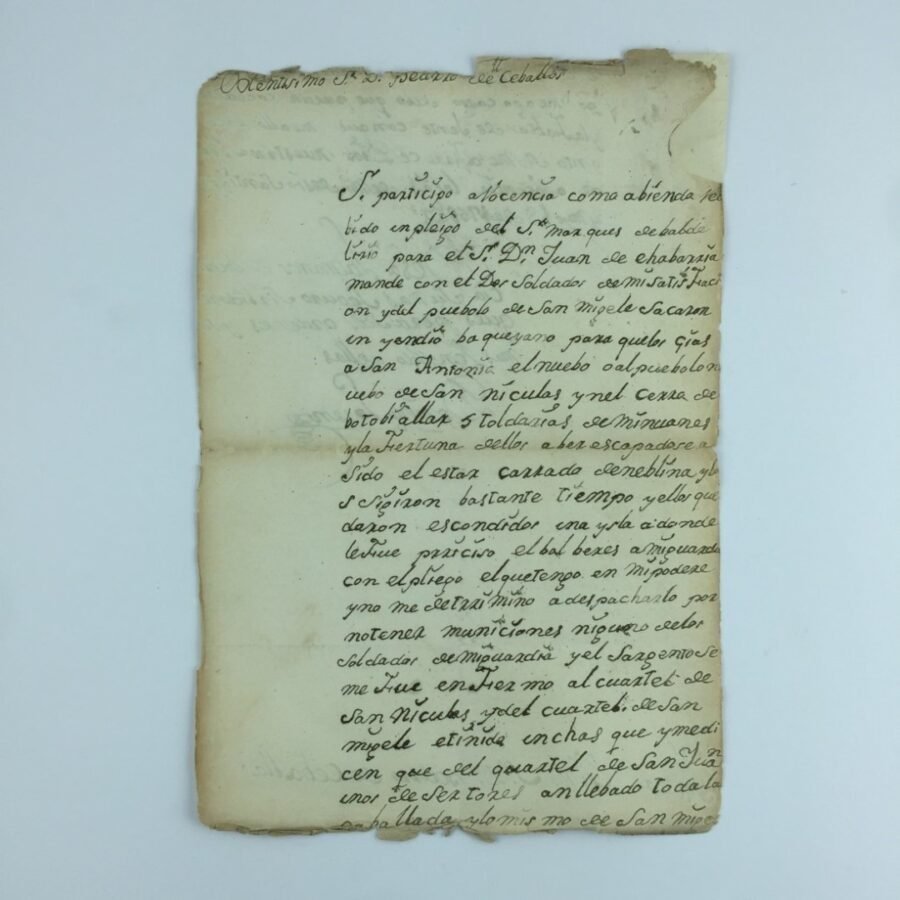 Exentisimo Sr. D. Pedrro de Ceballos
Sr. participo a Vocencia como abienda rec
bido un pleigo del Sr. marques de balde
lirio para el Sr. Dn. Juan de chabarria
mande con el Dos Soldados de mi satisfaci
on y del pueblo de San migele sacaron
un yendio baqueyano para que los gias
a San Antonia el nuebo o al pueblo n
uebo de San niculas y nel cerra de
botobi allar 5 toldarias de minuanes
y la Fertuna dellos aber escapadose a
Sido el estar carrado de neblina y lo
s sigiron bastante tiempo y ellos que
daron escondidos una ysla a donde
le Fue prriciso el bolberes a mi guardi
con el pliego el que tengo en mi podere
y no me detrrimino a despacharlo por
no tener municiones niguno de los
soldados de mi guardia y el Sargento se
me Fue enFermo al cuartel de
San Niculas y del cuartel de San
migele etinido unchas que y me di
cen que del quartel de San Juan
unos desertores an llebado toda la
caballada y lo mismo de San mige